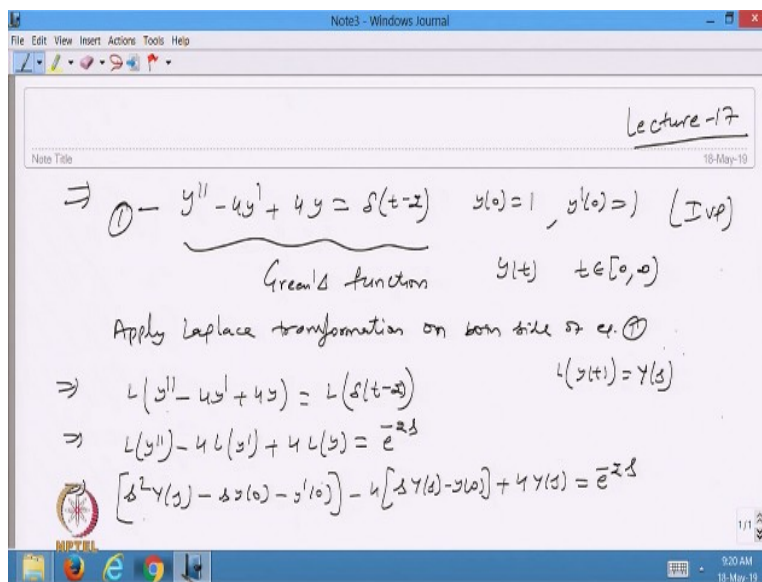 Note3 - Windows Journal
File Edit View Insert Actions Tools Help
Lecture-17
Note Title
18-May-19
⇒ ① - y'' - 4y' + 4y = δ(t-2) y(0)=1, y'(0)=1 (IVP)
Green's function y(t) t∈[0,∞)
Apply Laplace transformation on both side of eq. ①
L(y(t)) = Y(s)
⇒ L(y'' - 4y' + 4y) = L(δ(t-2))
⇒ L(y'') - 4L(y') + 4L(y) = e^{-2s}
⇒ [s²Y(s) - sy(0) - y'(0)] - 4[sY(s) - y(0)] + 4Y(s) = e^{-2s}
NPTEL
1/1
9:20 AM
18-May-19